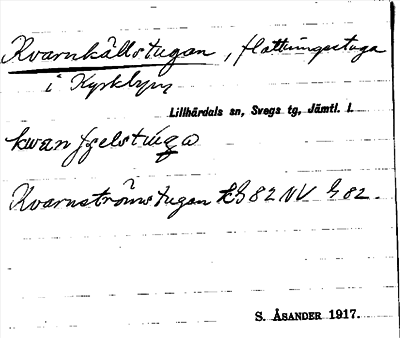 Kvarnkällstugan, flottningsstuga
i Kyrkbyn
Lillhärdals sn, Svegs tg, Jämtl. l.
Kvarnströmstugan EG 82 NV G 82.
S. ÅSANDER 1917.